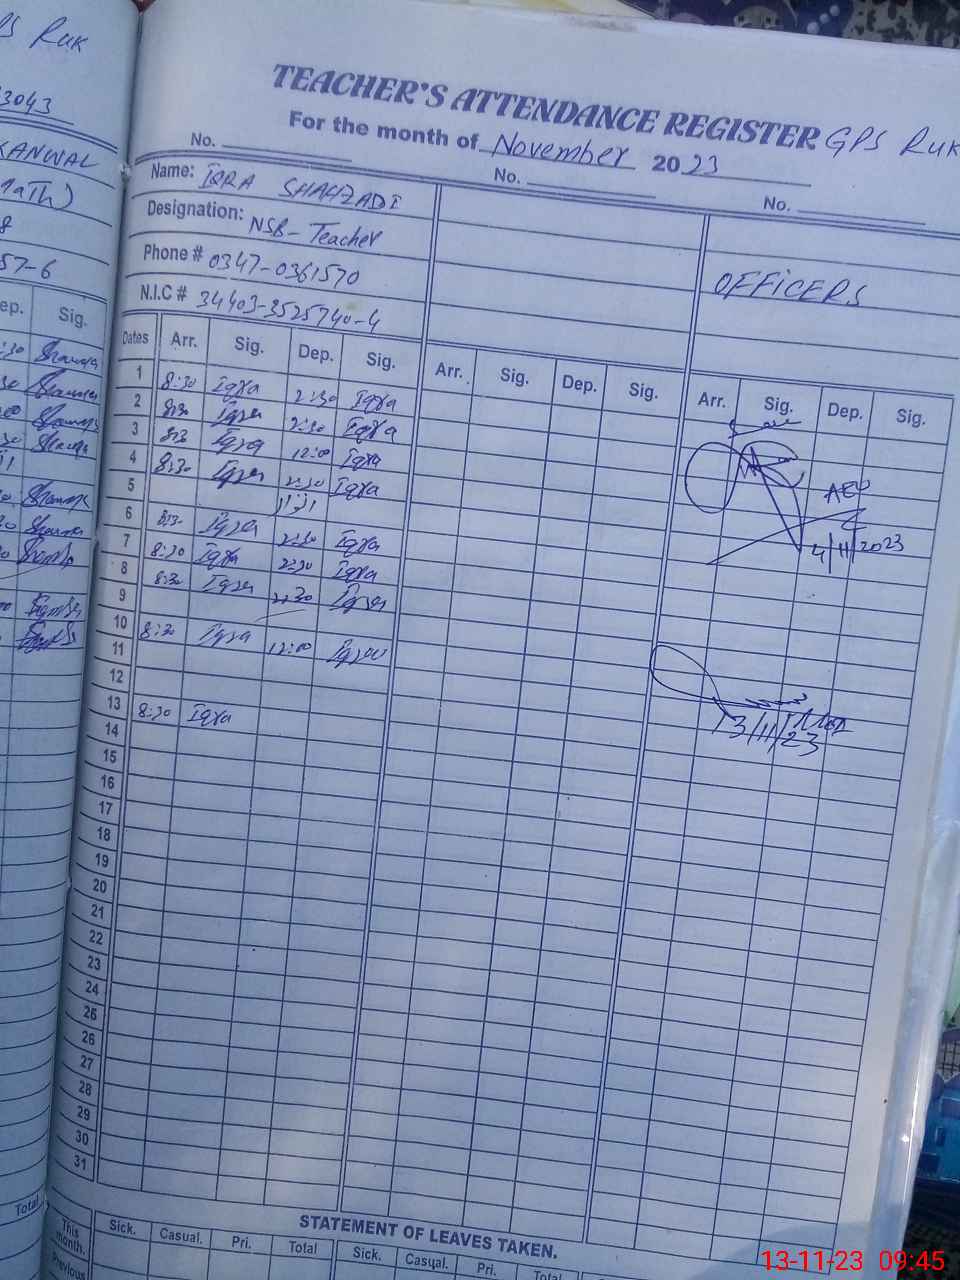 PS RUK
3043
KANWAL
57-6
ep. Sig.
TEACHER'S ATTENDANCE REGISTER GPS RUK
For the month of November 2023
No. No. No.
Name: IQRA SHAHZADI
Designation: NSB-Teacher
Phone # 0347-0361570
OFFICERS
N.I.C # 34403-3525740-4
Dates Arr. Sig. Dep. Sig. Arr. Sig. Dep. Sig. Arr. Sig. Dep. Sig.
1 8:30 Iqra 2:30 Iqra
2 8:30 Iqra 2:30 Iqra
3 8:30 Iqra 12:00 Iqra
4 8:30 Iqra 2:30 Iqra AEO
5
6 8:30 Iqra 2:30 Iqra 4/11/2023
7 8:30 Iqra 2:30 Iqra
8 8:30 Iqra 2:30 Iqra
9
10 8:30 Iqra 12:00 Iqra
11
12
13 8:30 Iqra 13/11/23
14
15
16
17
18
19
20
21
22
23
24
25
26
27
28
29
30
31
Total
STATEMENT OF LEAVES TAKEN.
This month. Sick. Casual. Pri. Total Sick. Casual. Pri. Total
Previous
13-11-23 09:45